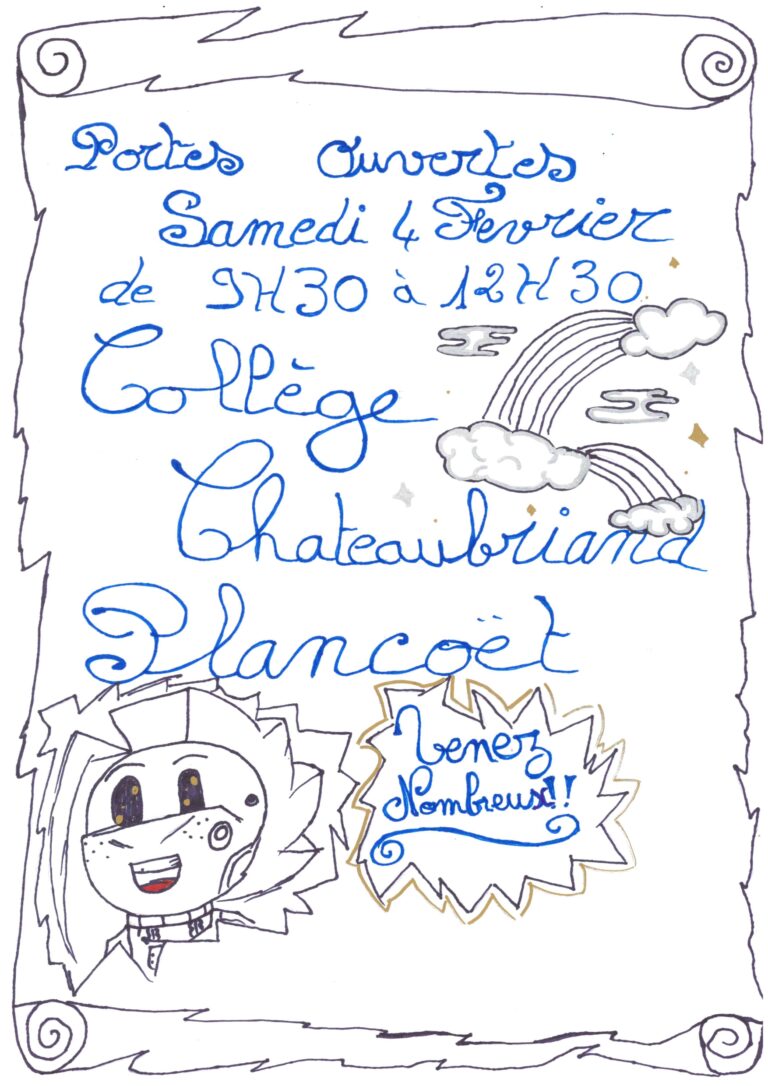 Portes Ouvertes
Samedi 4 Fevrier
de 9H30 à 12H30
Collège
Chateaubriand
Plancoët
Venez
Nombreux!!